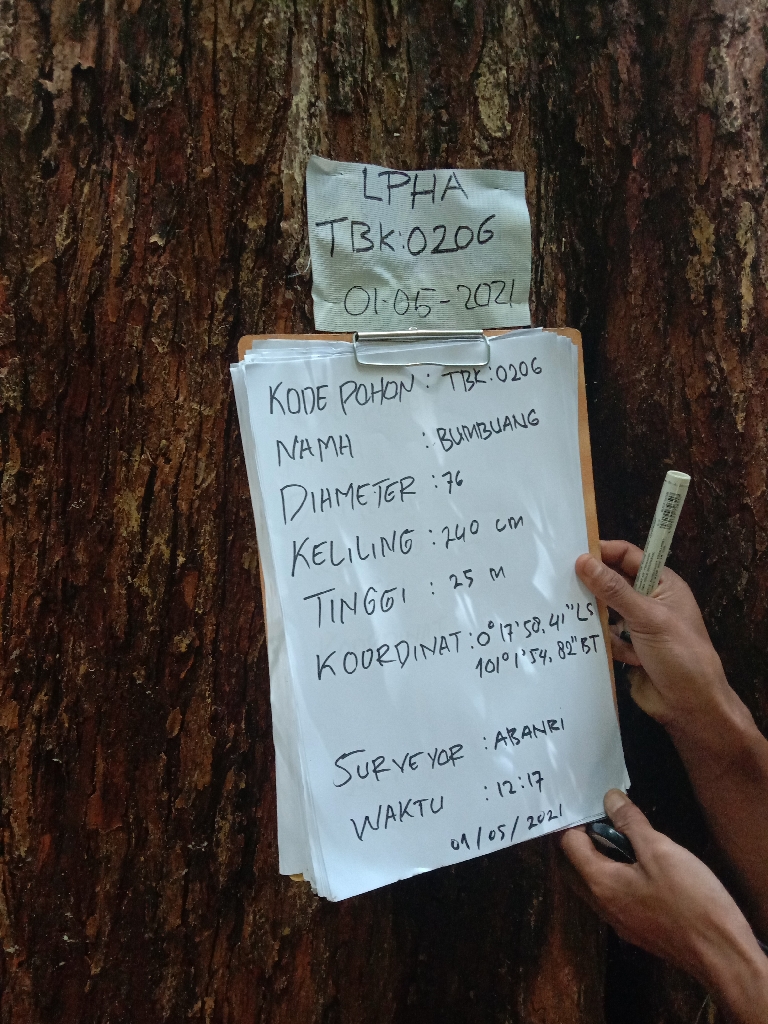 LPHA
TBK:0206
01-05-2021
KODE POHON : TBK:0206
NAMA : BUMBUANG
DIAMETER : 76
KELILING : 240 cm
TINGGI : 25 M
KOORDINAT : 0°17'58.41"LS
101°1'54.82"BT
SURVEYOR : ABANRI
WAKTU : 12:17
01/05/2021